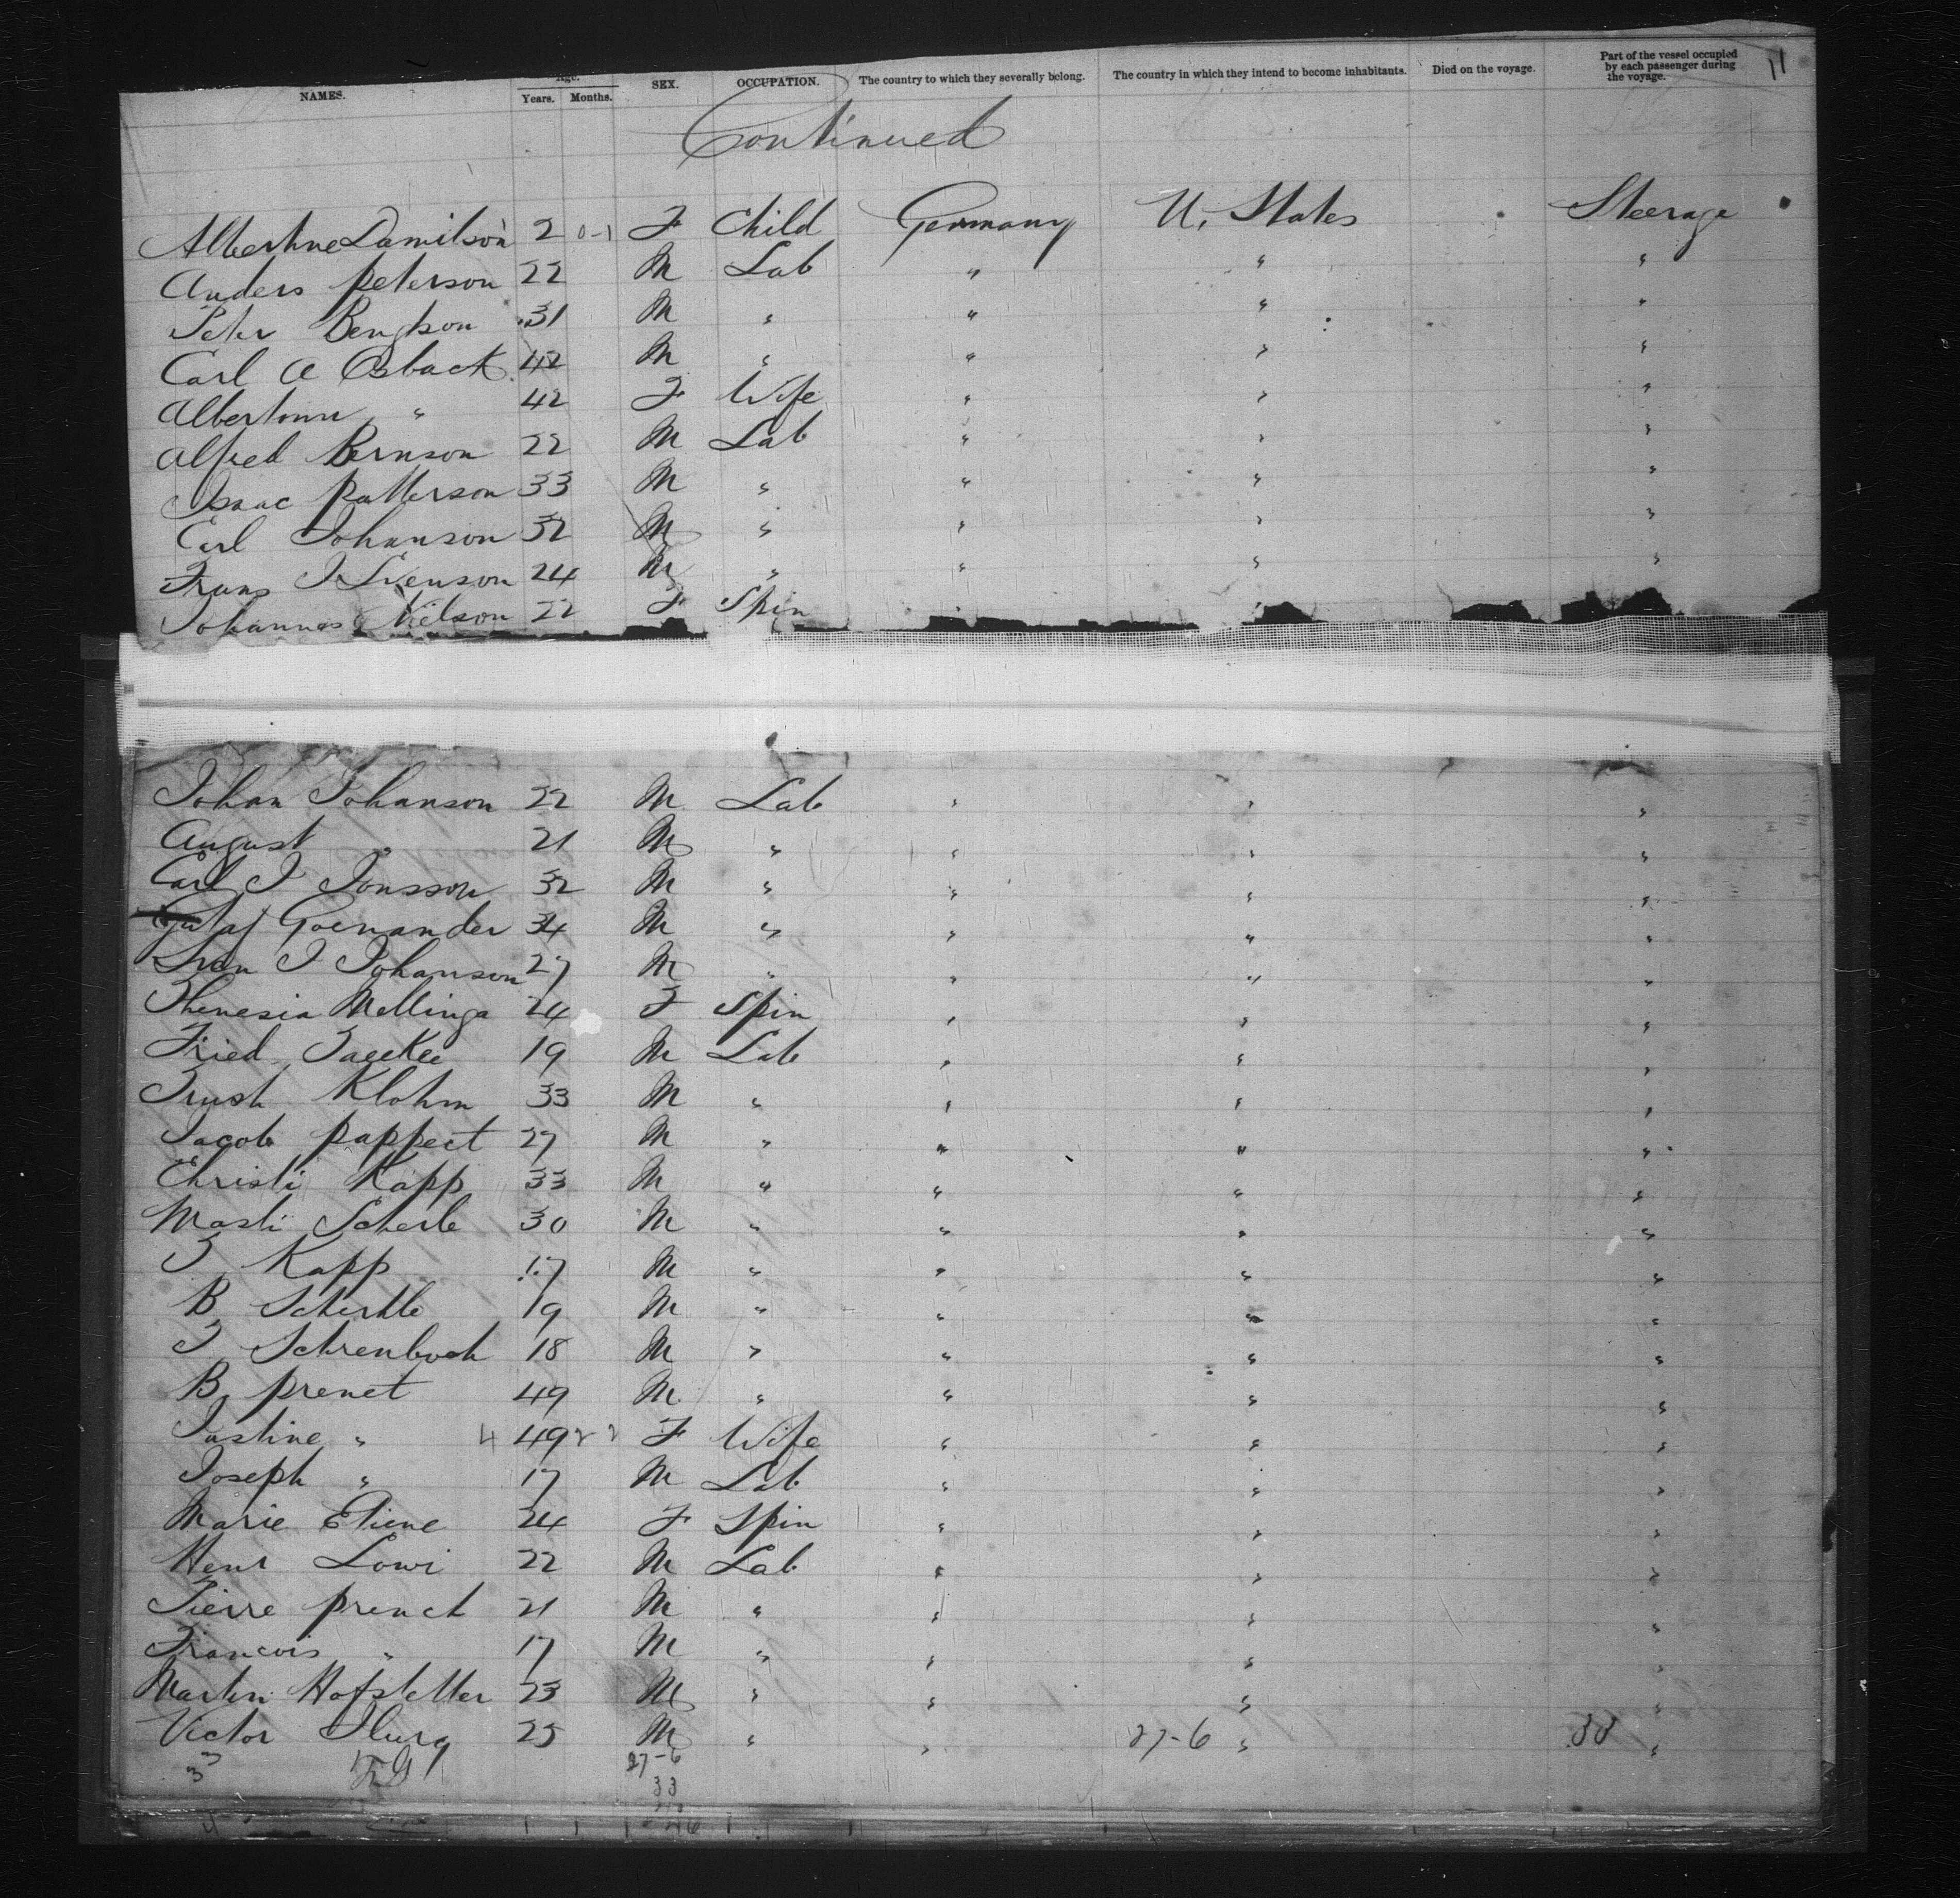 NAMES. Age. Years. Months. SEX. OCCUPATION. The country to which they severally belong. The country in which they intend to become inhabitants. Died on the voyage. Part of the vessel occupied by each passenger during the voyage. 11
Continued
Albertine Damilson 2 0-1 F Child Germany U. States Steerage
Anders Peterson 22 M Lab " " "
Peter Bengtson 31 M " " " "
Carl A Osback 42 M " " " "
" 42 F Wife " " "
Alfred Bernson 22 M Lab " " "
Isaac Patterson 33 M " " " "
Carl Johanson 32 M " " " "
Frans J Svenson 24 M " " " "
Johannas Nilson 22 F Spin " "
Johan Johanson 22 M Lab " " "
August " 21 M " " " "
Carl J Jonsson 32 M " " " "
34 M " " " "
Sven J Johanson 27 M " " " "
Theresia Mellinga 24 F Spin " " "
Fried 19 M Lab " " "
Klohm 33 M " " " "
Jacob Pappect 27 M " " " "
Christi Kapp 33 M " " " "
Masti Scherle 30 M " " " "
J Kapp 17 M " " " "
B. Schertle 19 M " " " "
J Schrenbock 18 M " " " "
B. Prenet 49 M " " " "
Justine " 4 49 2 2 F Wife " " "
Joseph " 17 M Lab " " "
Marie Etiene 24 F Spin " " "
Henr Lowi 22 M Lab " " "
Pierre Prench 21 M " " " "
Francois " 17 M " " " "
Martin Hofstetter 23 M " " " "
Victor 25 M " " 27-6 " 33 "
33 27-6
33